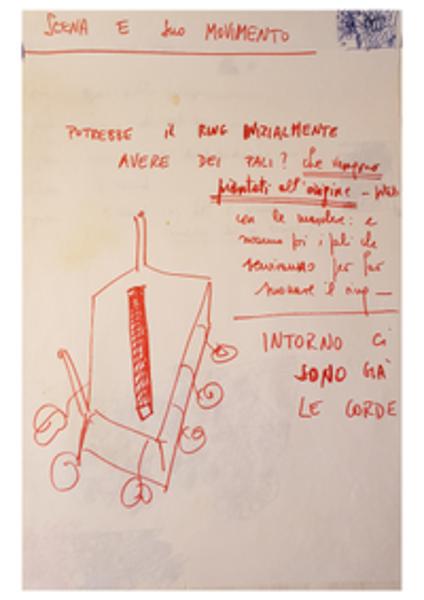 SCENA E SUO MOVIMENTO
POTREBBE IL RING INIZIALMENTE
AVERE DEI PALI? che vengono
piantati all'origine -
con le : e
poi i pali che
serviranno per far
suonare il ring
INTORNO CI
SONO GIÀ
LE CORDE